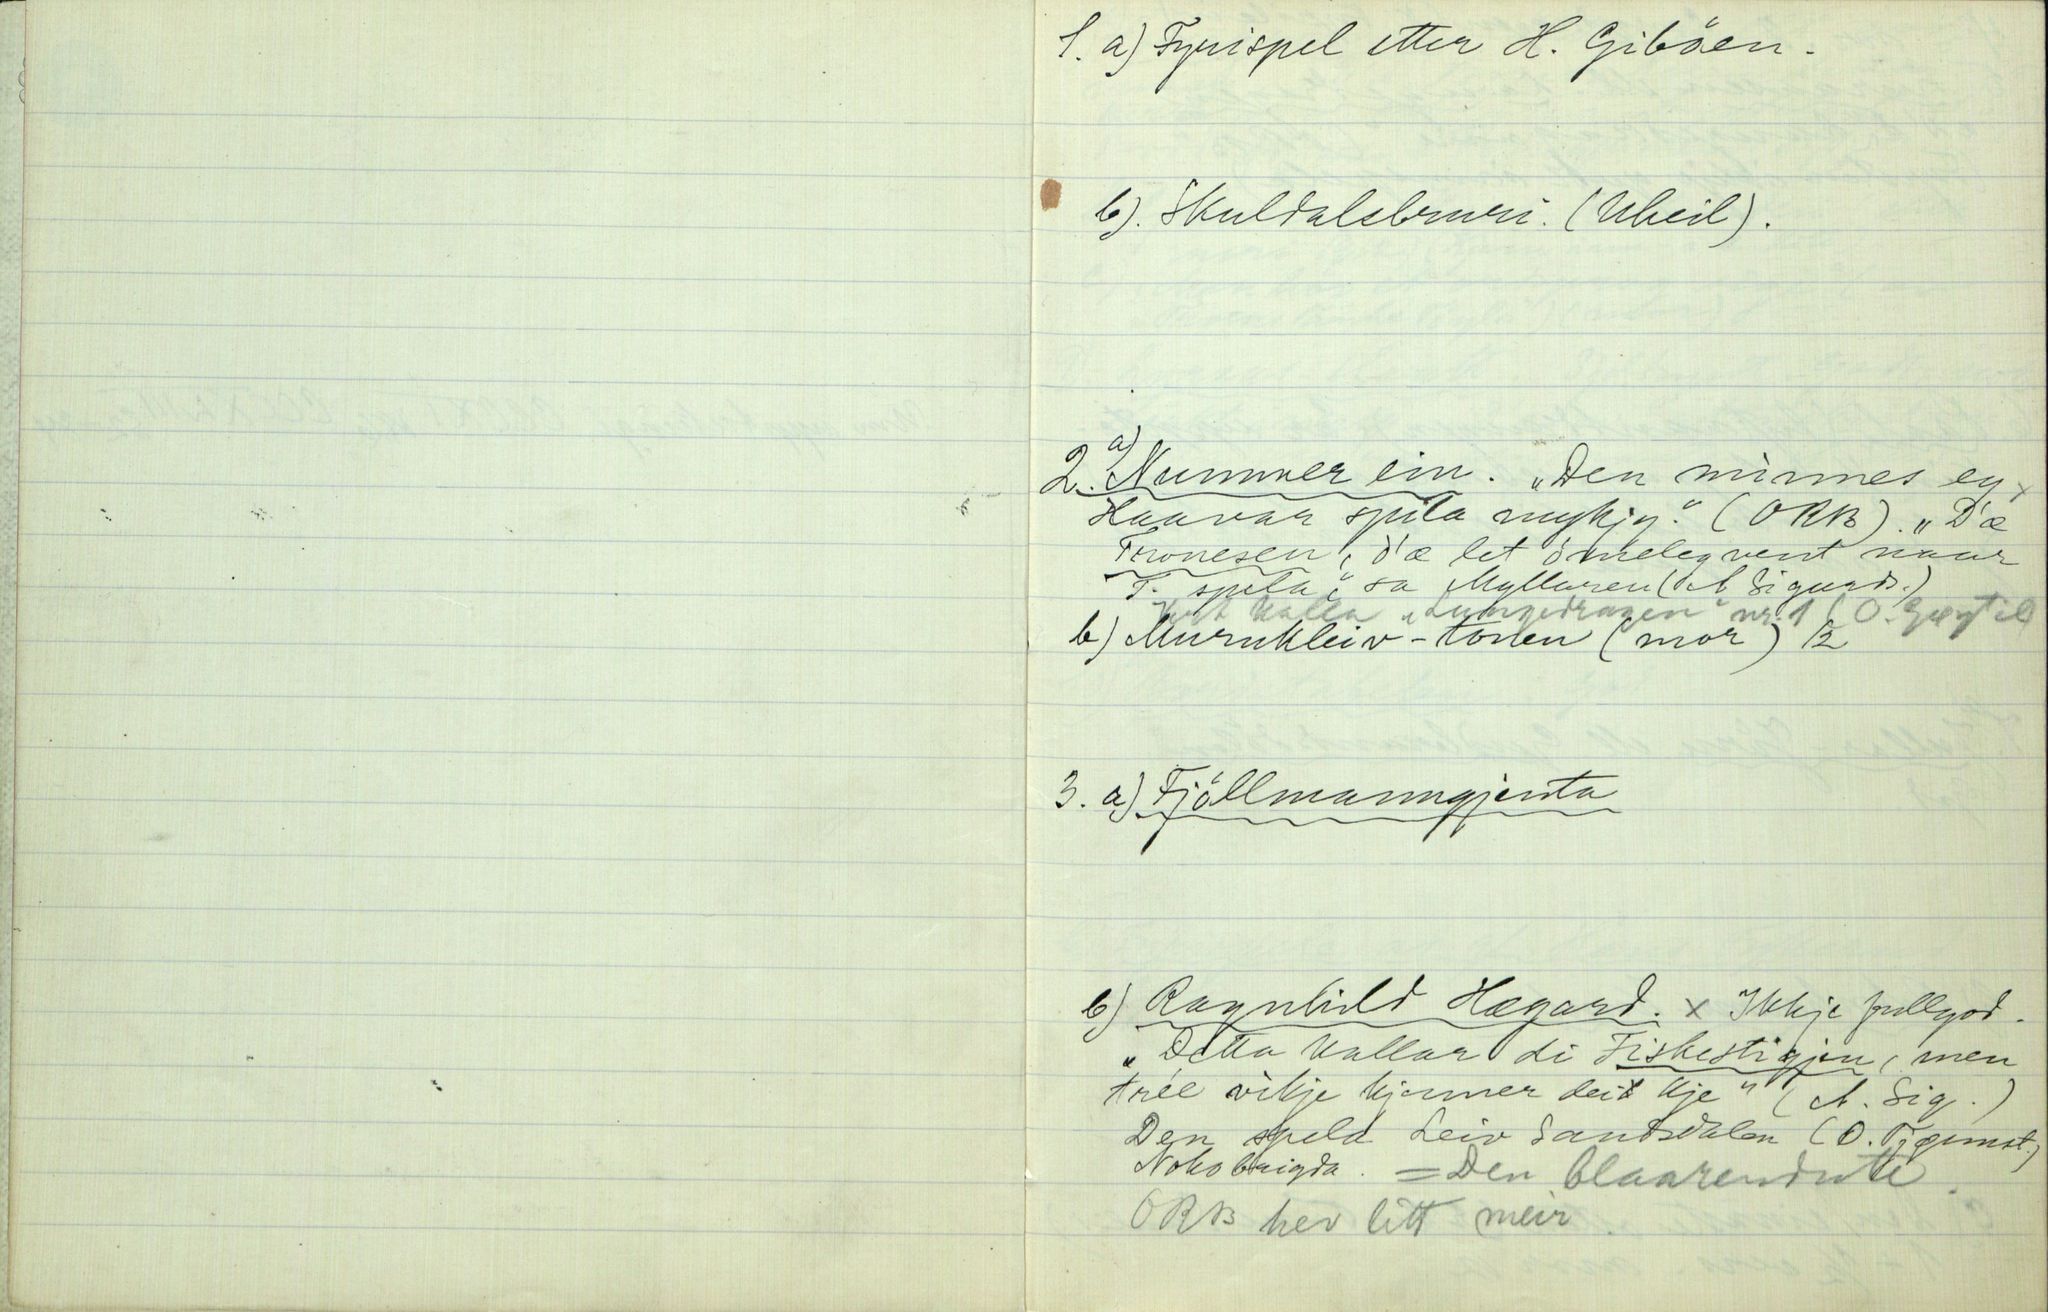 1. a) Fyrispel etter H. Giböen.
b). Skuldalsbruri. (Uheil).
a)
2. Nummer ein. „Den minnes eg
Haavar spela mykjy." (ORB). „D'æ
Tronesen, d'æ let ömeleg vent naar
T. spela", sa Myllaren (A Sigurds.)
kalla „Lungedragen" nr. 1 (O.
b) Murukleiv-tonen (mor) 1/2
3. a) Fjöllmanngjenta
b) Ragnhild Hægard. x Ikkje fullgod.
„Detta kallar di Fiskestigjen, men
tree vikje kjenner dei kje" (A. Sig.)
Den spela Leiv Sandsdalen (O. Fjømst.)
Noko brigda. = Den blaarendutte.
ORB hev litt meir